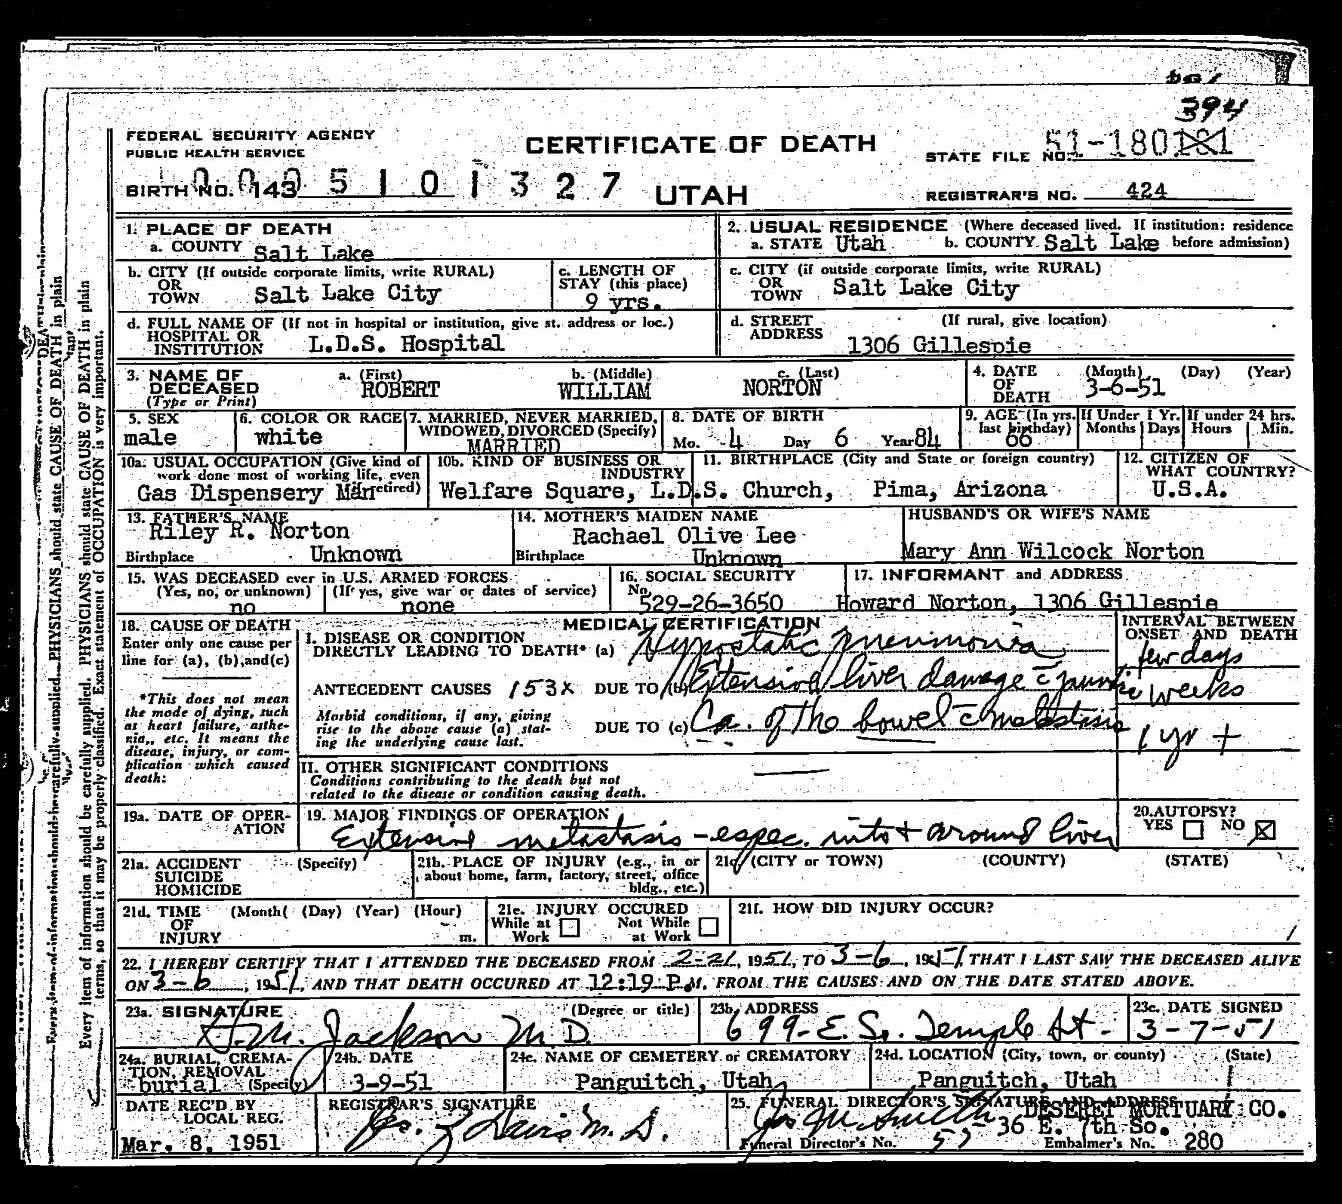 394
FEDERAL SECURITY AGENCY
PUBLIC HEALTH SERVICE
CERTIFICATE OF DEATH
STATE FILE NO. 51-180181
BIRTH NO. 143
0005101327
UTAH
REGISTRAR'S NO. 424
1. PLACE OF DEATH
a. COUNTY Salt Lake
2. USUAL RESIDENCE (Where deceased lived. If institution: residence
a. STATE Utah b. COUNTY Salt Lake before admission)
b. CITY (If outside corporate limits, write RURAL)
OR
TOWN Salt Lake City
c. LENGTH OF
STAY (this place)
9 yrs.
c. CITY (if outside corporate limits, write RURAL)
OR
TOWN Salt Lake City
d. FULL NAME OF (If not in hospital or institution, give st. address or loc.)
HOSPITAL OR
INSTITUTION L.D.S. Hospital
d. STREET (If rural, give location)
ADDRESS
1306 Gillespie
3. NAME OF a. (First) b. (Middle) c. (Last)
DECEASED ROBERT WILLIAM NORTON
(Type or Print)
4. DATE (Month) (Day) (Year)
OF 3-6-51
DEATH
5. SEX
male
6. COLOR OR RACE
white
7. MARRIED, NEVER MARRIED,
WIDOWED, DIVORCED (Specify)
MARRIED
8. DATE OF BIRTH
Mo. 4 Day 6 Year 84
9. AGE (In yrs. last birthday)
66
If Under 1 Yr.
Months Days
If under 24 hrs.
Hours Min.
10a. USUAL OCCUPATION (Give kind of
work done most of working life, even
Gas Dispensery Man retired)
10b. KIND OF BUSINESS OR
INDUSTRY
Welfare Square, L.D.S. Church,
11. BIRTHPLACE (City and State or foreign country)
Pima, Arizona
12. CITIZEN OF
WHAT COUNTRY?
U.S.A.
13. FATHER'S NAME
Riley R. Norton
Birthplace Unknown
14. MOTHER'S MAIDEN NAME
Rachael Olive Lee
Birthplace Unknown
HUSBAND'S OR WIFE'S NAME
Mary Ann Wilcock Norton
15. WAS DECEASED ever in U.S. ARMED FORCES
(Yes, no, or unknown) (If yes, give war or dates of service)
no none
16. SOCIAL SECURITY
No.
529-26-3650
17. INFORMANT and ADDRESS
Howard Norton, 1306 Gillespie
18. CAUSE OF DEATH
Enter only one cause per
line for (a), (b), and (c)
*This does not mean
the mode of dying, such
as heart failure, asthe-
nia, etc. It means the
disease, injury, or com-
plication which caused
death:
MEDICAL CERTIFICATION
I. DISEASE OR CONDITION
DIRECTLY LEADING TO DEATH* (a) Hypostatic pneumonia
ANTECEDENT CAUSES 153X DUE TO (b) Extensive liver damage c̄
Morbid conditions, if any, giving
rise to the above cause (a) stat-
ing the underlying cause last.
DUE TO (c) Ca. of the bowel c̄ metastasis
INTERVAL BETWEEN
ONSET AND DEATH
few days
weeks
1 yr +
II. OTHER SIGNIFICANT CONDITIONS
Conditions contributing to the death but not
related to the disease or condition causing death.
19a. DATE OF OPER-
ATION
19. MAJOR FINDINGS OF OPERATION
Extensive metastasis - espec. into + around liver
20. AUTOPSY?
YES NO
21a. ACCIDENT (Specify)
SUICIDE
HOMICIDE
21b. PLACE OF INJURY (e.g., in or
about home, farm, factory, street, office
bldg., etc.)
21c. (CITY or TOWN) (COUNTY) (STATE)
21d. TIME (Month) (Day) (Year) (Hour)
OF
INJURY m.
21e. INJURY OCCURED
While at Work Not While at Work
21f. HOW DID INJURY OCCUR?
22. I HEREBY CERTIFY THAT I ATTENDED THE DECEASED FROM 2-21, 1951, TO 3-6, 1951 THAT I LAST SAW THE DECEASED ALIVE
ON 3-6, 1951, AND THAT DEATH OCCURED AT 12:19 P.M. FROM THE CAUSES AND ON THE DATE STATED ABOVE.
23a. SIGNATURE (Degree or title)
H.M. Jackson M.D.
23b. ADDRESS
699-E. So. Temple St.
23c. DATE SIGNED
3-7-51
24a. BURIAL, CREMA-
TION, REMOVAL
burial (Specify)
24b. DATE
3-9-51
24c. NAME OF CEMETERY or CREMATORY
Panguitch, Utah
24d. LOCATION (City, town, or county) (State)
Panguitch, Utah
DATE REC'D BY
LOCAL REG.
Mar. 8, 1951
REGISTRAR'S SIGNATURE
25. FUNERAL DIRECTOR'S SIGNATURE AND ADDRESS
DESERET MORTUARY CO.
36 E. 7th So.
Funeral Director's No. 57 Embalmer's No. 280
Every item of information should be carefully supplied. PHYSICIANS should state CAUSE OF DEATH in plain
terms, so that it may be properly classified. Exact statement of OCCUPATION is very important.